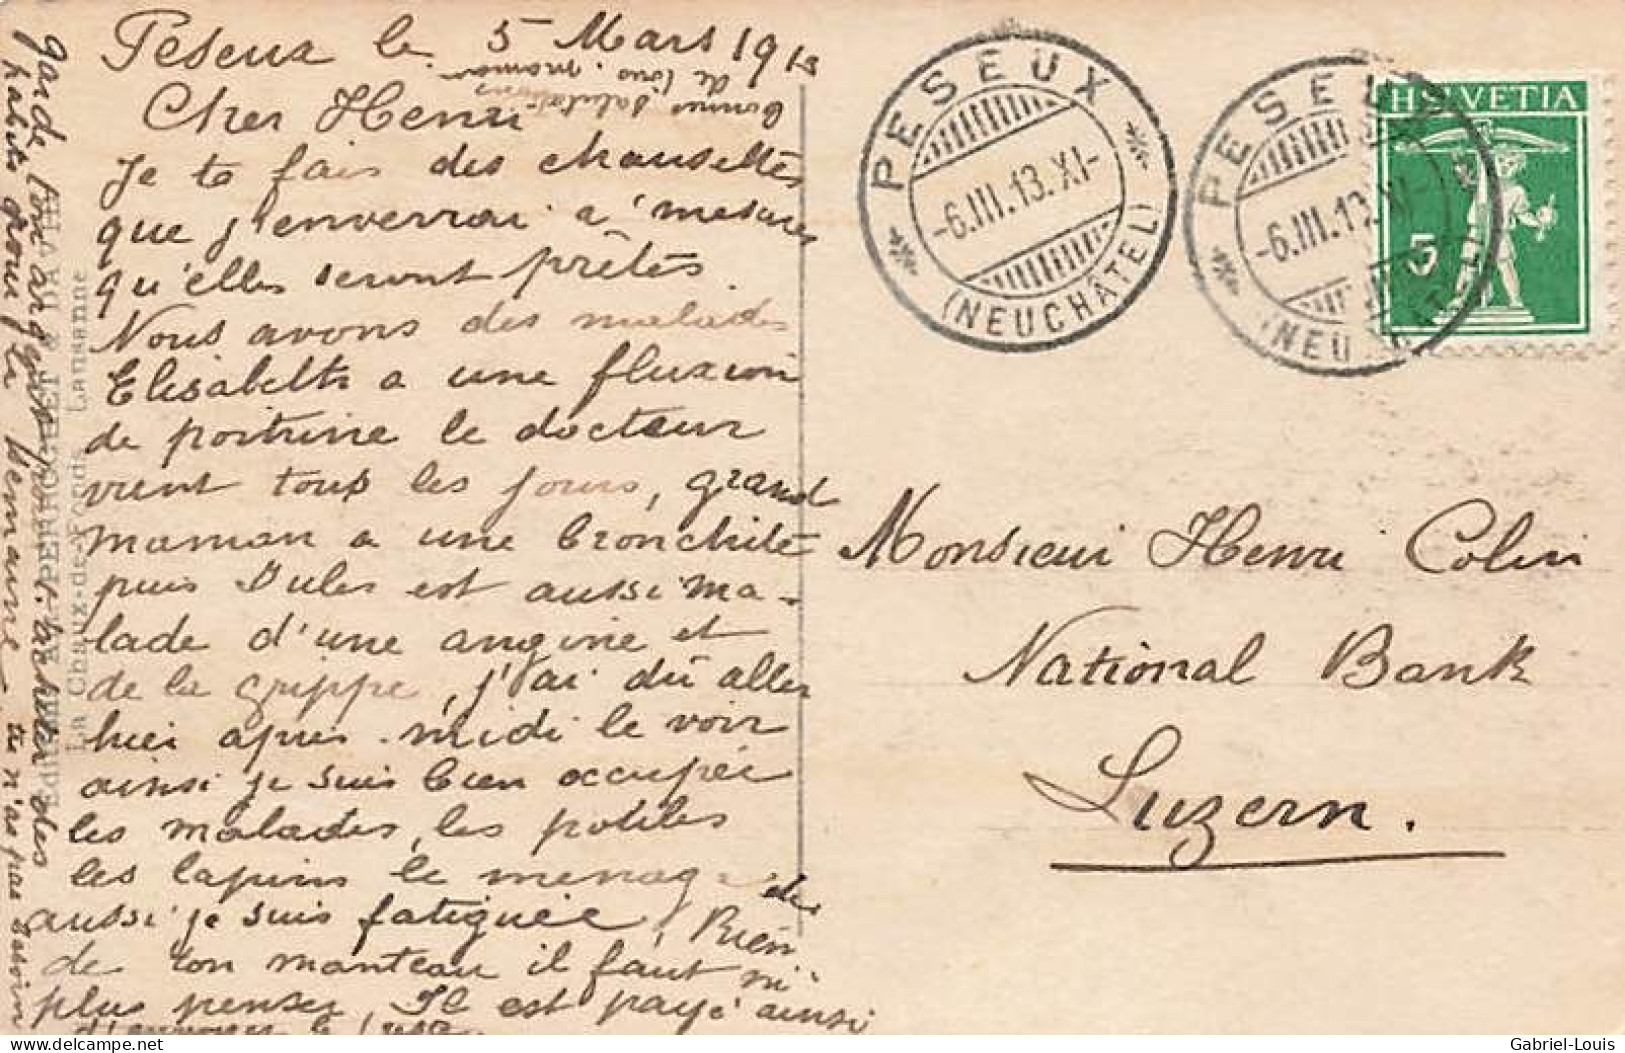 Peseux le 5 Mars 1913
Cher Henri
Je te fais des chausettes
que j'enverrai a' mesures
qu'elles seront prêtes.
Nous avons des malades
Elisabeth a une fluxion
de poitrine le docteur
vient tous les jours, grand
maman a une bronchite
puis Jules est aussi ma-
lade d'une angine et
de la grippe, j'ai dû aller
hier apres-midi le voir
ainsi je suis bien occupée
les malades, les petites
les lapins le menage
aussi je suis fatiguée, Rien
de ton manteau il faut
plus penser, Il est payé ainsi
garde ton argent pour
habits pour la
tu n'as pas besoin
d'envoyer le reste
bonnes salutations
de tous. maman
PERROCHET & DAVID
La Chaux-de-Fonds Lausanne
PESEUX
-6.III.13.XI-
(NEUCHÂTEL)
PESEUX
-6.III.13.XI-
(NEUCHÂTEL)
HELVETIA
5
Monsieur Henri Colin
National Bank
Luzern.
delcampe.net
Gabriel-Louis